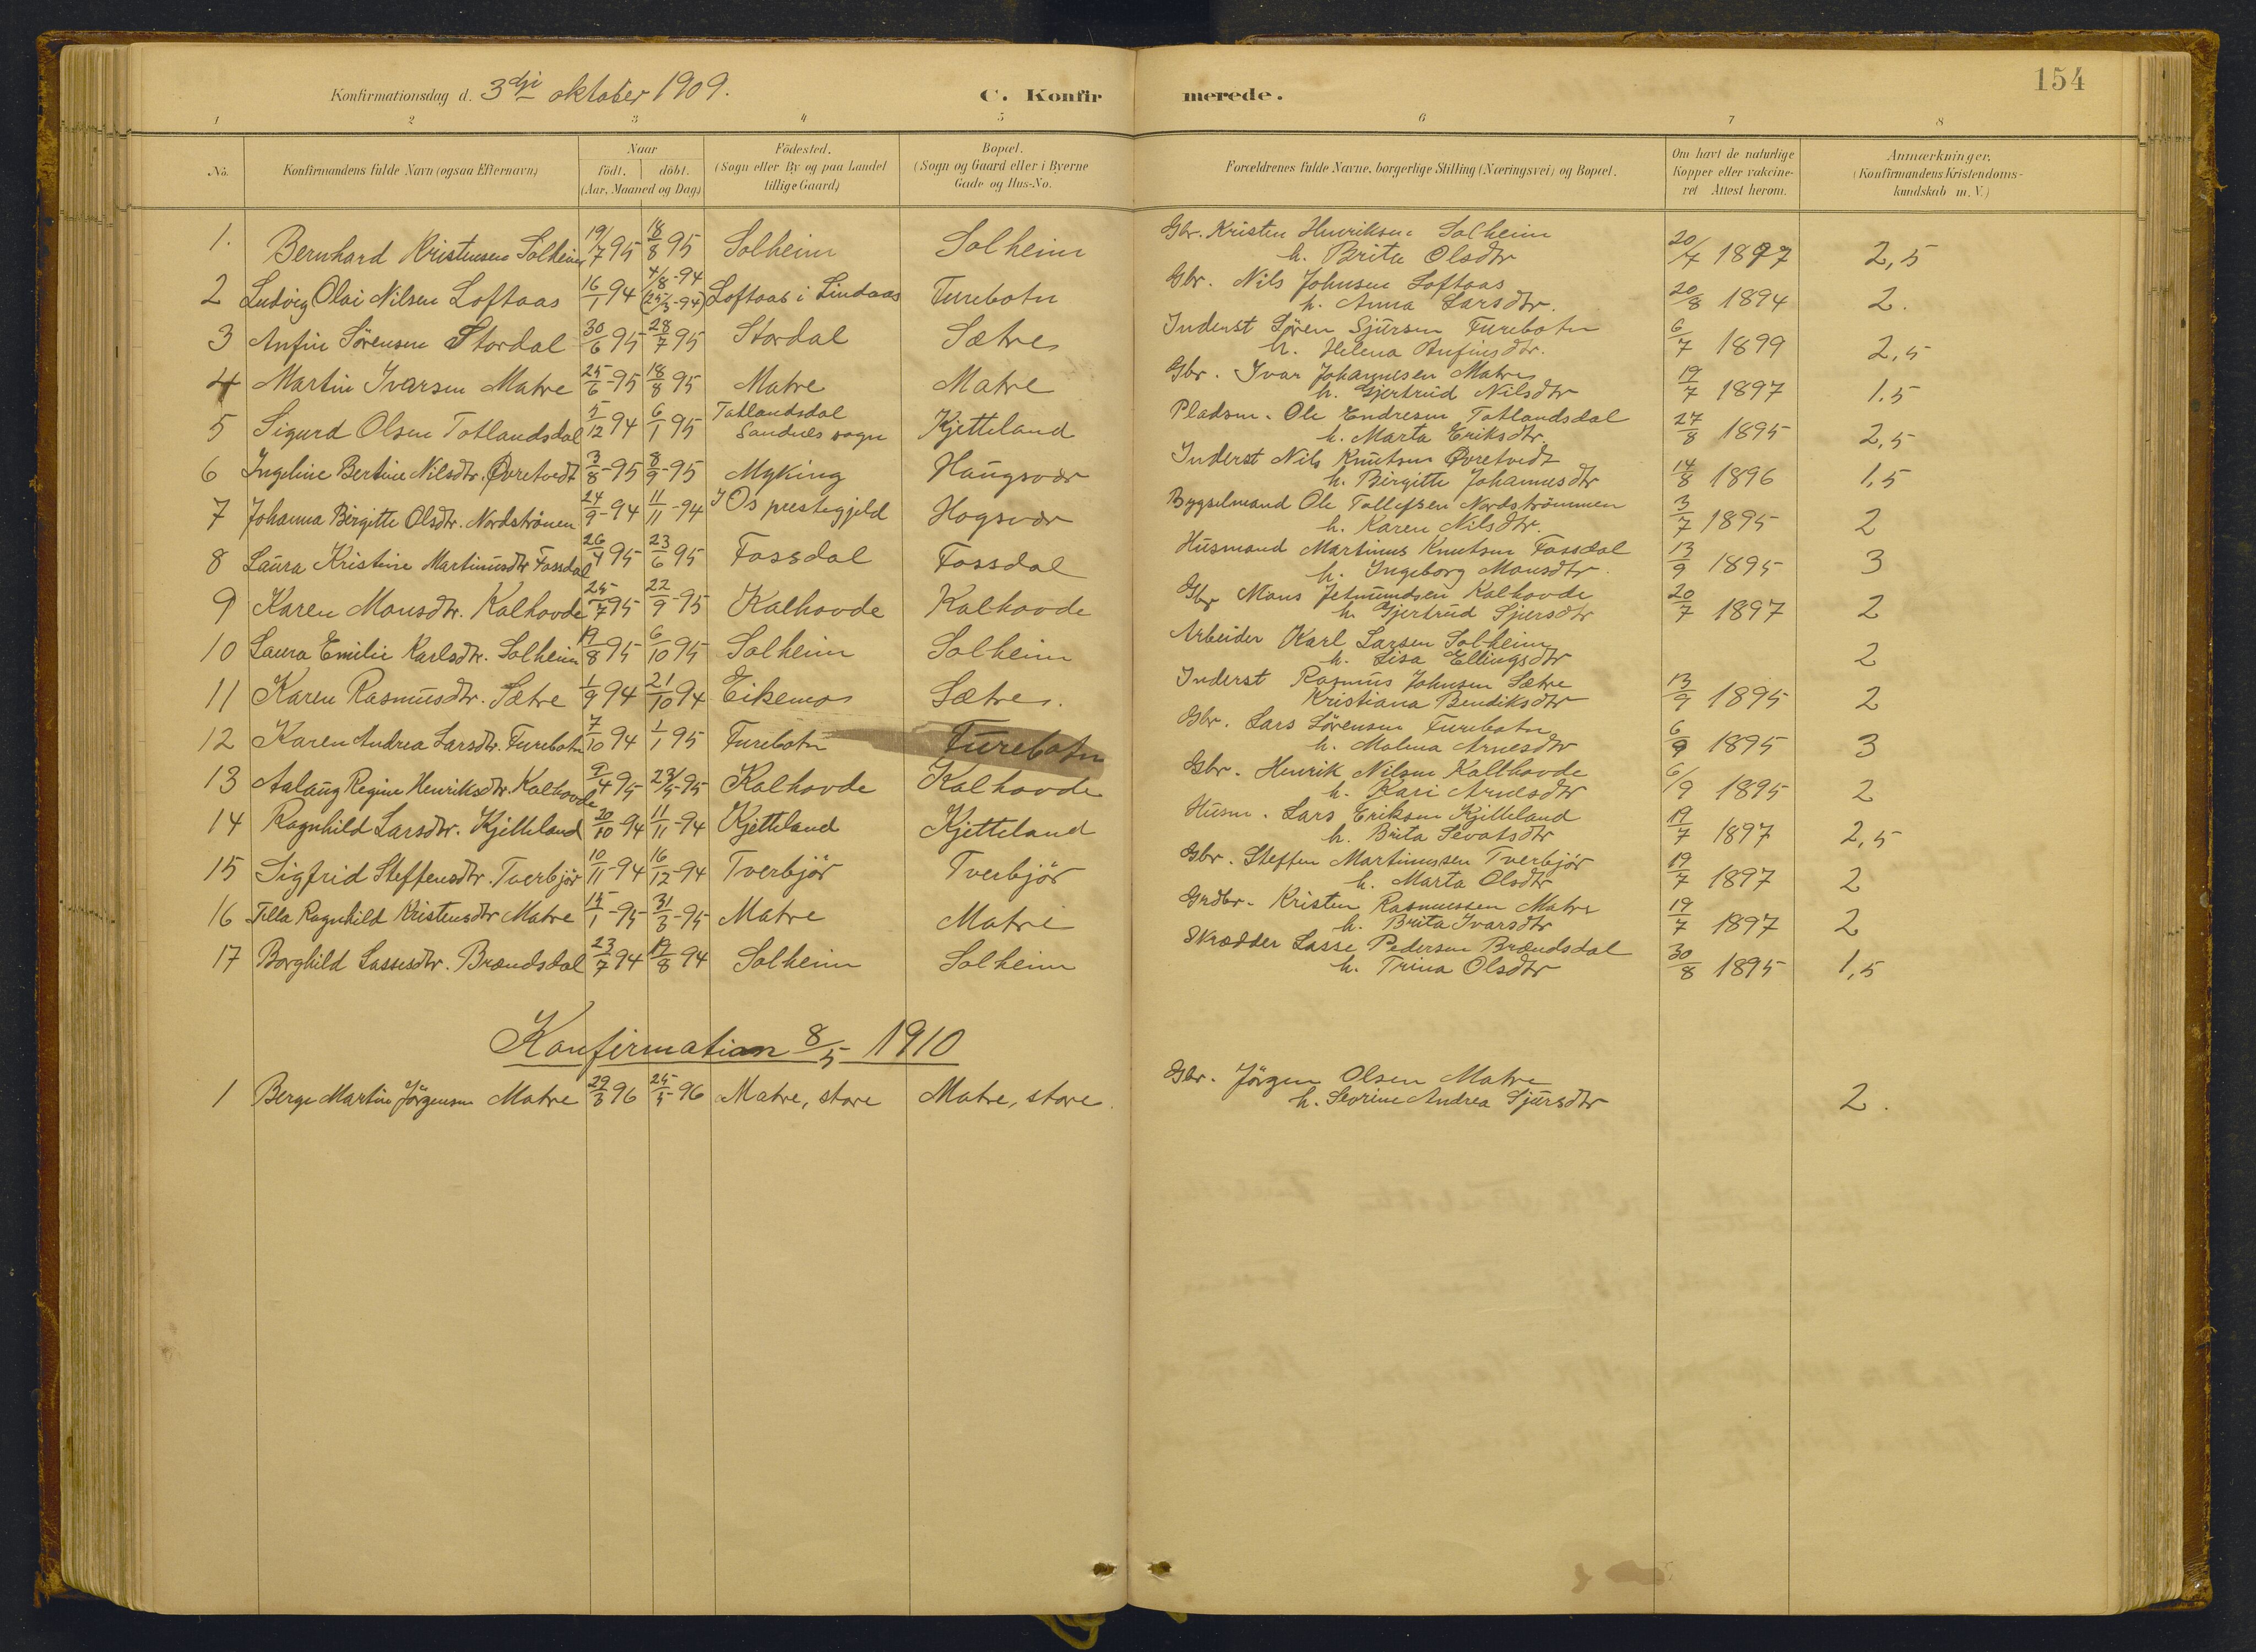 154
Konfirmationsdag d. 3dje oktober 1909. C. Konfirmerede.
1 2 3 4 5 6 7 8
No. Konfirmandens fulde Navn (ogsaa Efternavn) Naar födt. döbt. (Aar, Maaned og Dag) Födested. (Sogn eller By og paa Landet tillige Gaard) Bopæl. (Sogn og Gaard eller i Byerne Gade og Hus-No. Forældrenes fulde Navne, borgerlige Stilling (Næringsvei) og Bopæl. Om havt de naturlige Kopper eller vakcineret Attest herom. Anmærkninger. (Konfirmandens Kristendomskundskab m. V.)
1. Bernhard Kristensen Solheim 19/7 95 18/8 95 Solheim Solheim Gbr. Kristen Henriksen Solheim
h. Brita Olsdtr 20/7 1897 2,5
2 Ludvig Olai Nilsen Loftaas 16/1 94 4/8-94 (25/3-94) Loftaas i Lindaas Furebotn Gbr. Nils Johnsen Loftaas
h. Anna Larsdtr. 20/8 1894 2.
3 Anfin Sörensen Stordal 30/6 95 28/7 95 Stordal Sætre Inderst Sören Sjursen Furebotn
h. Helena Anfinsdtr. 6/7 1899 2,5
4 Martin Ivarsen Matre 25/6-95 18/8 95 Matre Matre Gbr. Ivar Johannesen Matre
h. Gjertrud Nilsdtr 19/7 1897 1,5
5 Sigurd Olsen Totlandsdal 5/12 94 6/1 95 Totlandsdal Sandnes sogn Kjetteland Pladsm. Ole Endresen Totlandsdal
h. Marta Eriksdtr. 27/8 1895 2,5
6 Ingeline Bertine Nilsdtr. Øvretvedt 3/8-95 8/9-95 Myking Haugsvær Inderst Nils Knutsen Øvretvedt
h. Birgitte Johannesdtr 14/8 1896 1,5
7 Johanna Birgitte Olsdtr. Nordströnen 24/9-94 11/11-94 I Os prestegjeld Hogsvær Bygselmand Ole Tollefsen Nordströmmen
h. Karen Nilsdtr. 3/7 1895 2
8 Laura Kristine Martinusdtr Fossdal 26/4 95 23/6 95 Fossdal Fossdal Husmand Martinus Knutsen Fossdal
h. Ingeborg Monsdtr. 13/9 1895 3
9 Karen Monsdtr. Kalhovde 25/7 95 22/9-95 Kalhovde Kalhovde Gbr Mons Jetmundsen Kalhovde
h. Gjertrud Sjursdtr 20/7 1897 2
10 Laura Emilie Karlsdtr. Solheim 19/8 95 6/10 95 Solheim Solheim Arbeider Karl Larsen Solheim
h. Lisa Ellingsdtr 2
11 Karen Rasmusdtr. Sætre 1/9 94 21/10 94 Eikemo Sætre. Inderst Rasmus Johnsen Sætre
Kristiana Bendiksdtr 13/9 1895 2
12 Karen Andrea Larsdtr. Furebotn 7/10 94 1/1 95 Furebotn Furebotn Gbr. Lars Sörensen Furebotn
h. Malena Arnesdtr 6/9 1895 3
13 Aslaug Regine Henriksdtr. Kalhovde 9/4 95 23/5-95 Kalhovde Kalhovde Gbr. Henrik Nilsen Kallhovde
h. Kari Arnesdtr 6/9 1895 2
14 Ragnhild Larsdtr. Kjetteland 20/10-94 11/11-94 Kjetteland Kjetteland Husm. Lars Eriksen Kjetteland
h. Brita Sevatsdtr 19/7 1897 2,5
15 Sigfrid Steffensdtr. Tverbjör 10/11-94 16/12-94 Tverbjör Tverbjör Gbr. Steffen Martinussen Tverbjör
h. Marta Olsdtr 19/7 1897 2
16 Tilla Ragnhild Kristensdtr Matre 15/1-95 31/3-95 Matre Matre Grdbr. Kristen Rasmussen Matre
h. Brita Ivarsdtr 19/7 1897 2
17 Borghild Lassesdtr. Brændsdal 23/7 94 19/8 94 Solheim Solheim Skrædder Lasse Pedersen Brændsdal
h. Trina Olsdtr 30/8 1895 1,5
Konfirmation 8/5 1910
1 Berge Martin Jörgensen Matre 29/3 96 25/5-96 Matre, store Matre, store. Gbr. Jörgen Olsen Matre
h. Severine Andrea Sjursdtr 2.